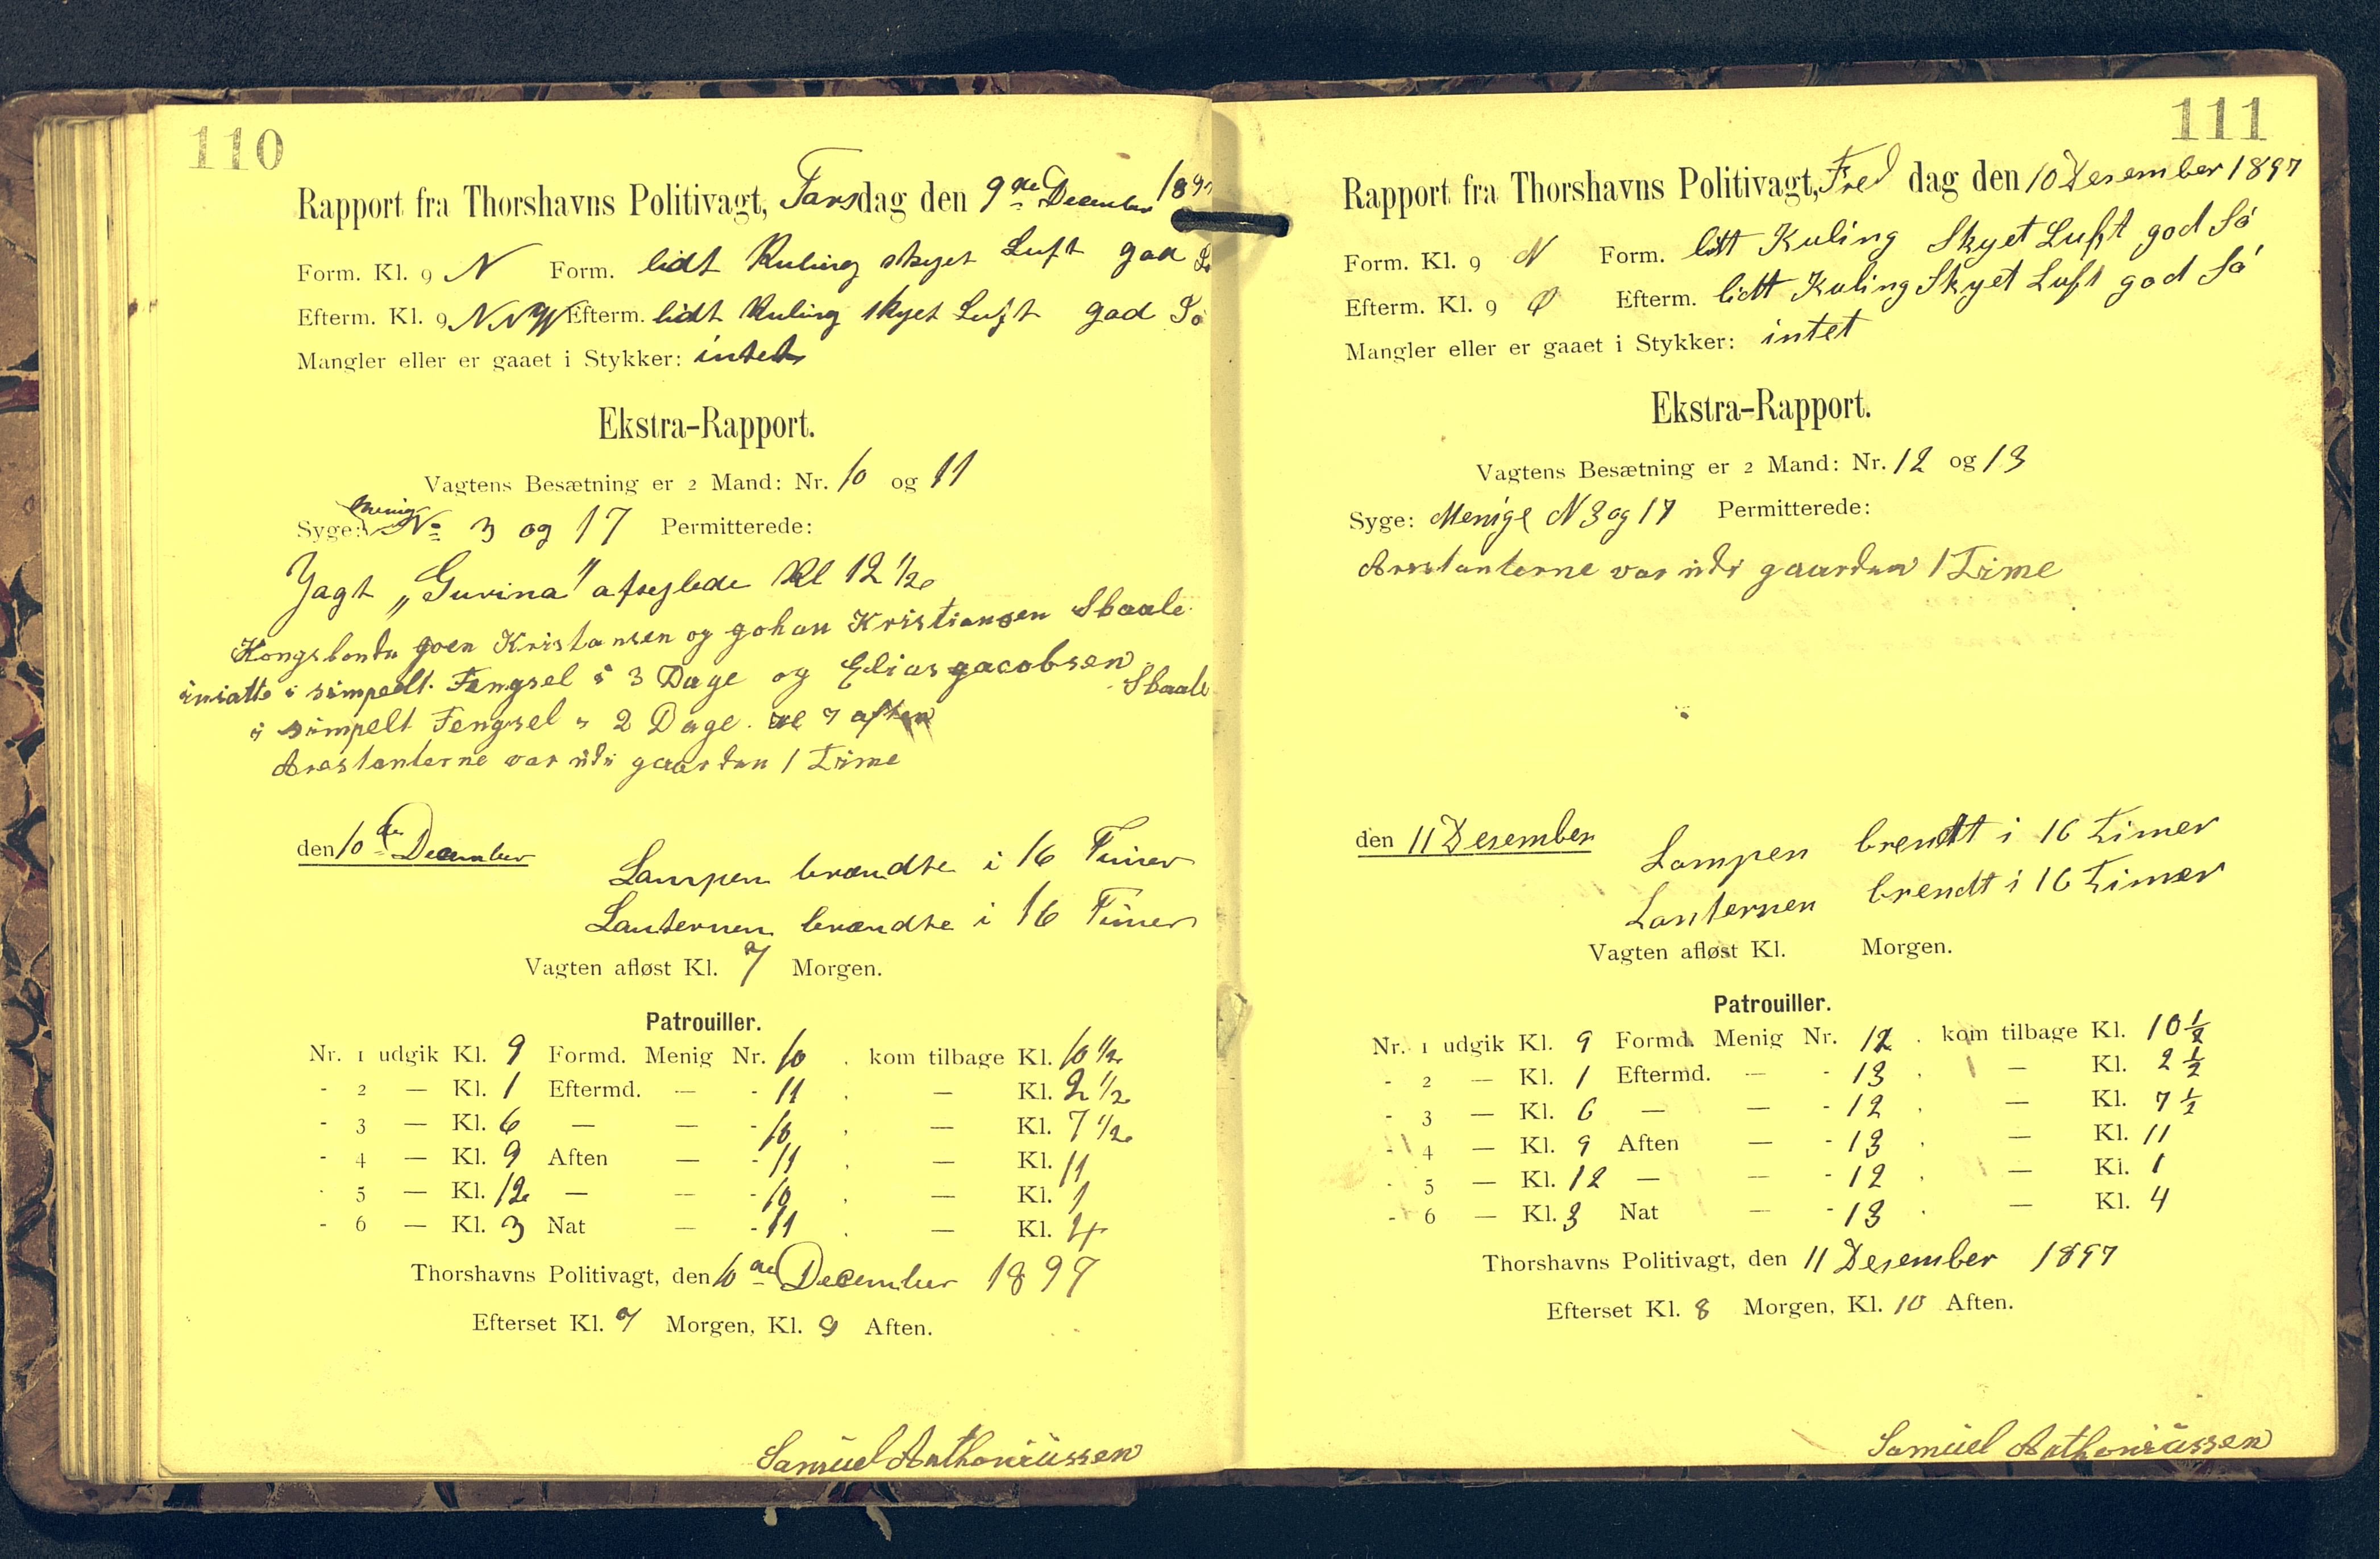 110
Rapport fra Thorshavns Politivagt, Torsdag den 9de December 1897
Form. Kl. 9 N Form. lidt Kuling skyet Luft god
Efterm. Kl. 9 NNW Efterm. lidt Kuling skyet Luft god So
Mangler eller er gaaet i Stykker: intet
Ekstra-Rapport.
Vagtens Besætning er 2 Mand: Nr. 10 og 11
Syge: Menig No 3 og 17 Permitterede:
Jagt „Gurina" afseglede Kl 12 1/2
Kongsbonde goen Kristansen og gohan Kristiansen Skaale
insatte i simpelt Fengsel i 3 Dage og Elias gacobsen Skaale
i simpelt Fengsel i 2 Dage. Kl 7 aften
Arestanterne var udi gaarden 1 Time
den 10de December
Lampen brændte i 16 Timer
Lanternen brændte i 16 Timer
Vagten afløst Kl. 7 Morgen.
Patrouiller.
Nr. 1 udgik Kl. 9 Formd. Menig Nr. 10 . kom tilbage Kl. 10 1/2
- 2 — Kl. 1 Eftermd. — - 11 . — Kl. 2 1/2
- 3 — Kl. 6 — — - 10 . — Kl. 7 1/2
- 4 — Kl. 9 Aften — - 11 . — Kl. 11
- 5 — Kl. 12 — — - 10 . — Kl. 1
- 6 — Kl. 3 Nat — - 11 . — Kl. 4
Thorshavns Politivagt, den 10de December 1897
Efterset Kl. 7 Morgen, Kl. 9 Aften.
Samuel Anthoniussen
111
Rapport fra Thorshavns Politivagt, Fredag den 10 Desember 1897
Form. Kl. 9 N Form. litt Kuling Skyet Luft god Só
Efterm. Kl. 9 Ø Efterm. lidt Kuling Skyet Luft god Só
Mangler eller er gaaet i Stykker: intet
Ekstra-Rapport.
Vagtens Besætning er 2 Mand: Nr. 12 og 13
Syge: Menige N 3 og 17 Permitterede:
Arestanterne var udi gaarden 1 Time
den 11 Desember
Lampen brendt i 16 Timer
Lanternen brendt i 16 Timer
Vagten afløst Kl. Morgen.
Patrouiller.
Nr. 1 udgik Kl. 9 Formd. Menig Nr. 12 . kom tilbage Kl. 10 1/2
- 2 — Kl. 1 Eftermd. — - 13 . — Kl. 2 1/2
- 3 — Kl. 6 — — - 12 . — Kl. 7 1/2
- 4 — Kl. 9 Aften — - 13 . — Kl. 11
- 5 — Kl. 12 — — - 12 . — Kl. 1
- 6 — Kl. 3 Nat — - 13 . — Kl. 4
Thorshavns Politivagt, den 11 Desember 1897
Efterset Kl. 8 Morgen, Kl. 10 Aften.
Samuel Anthoniussen